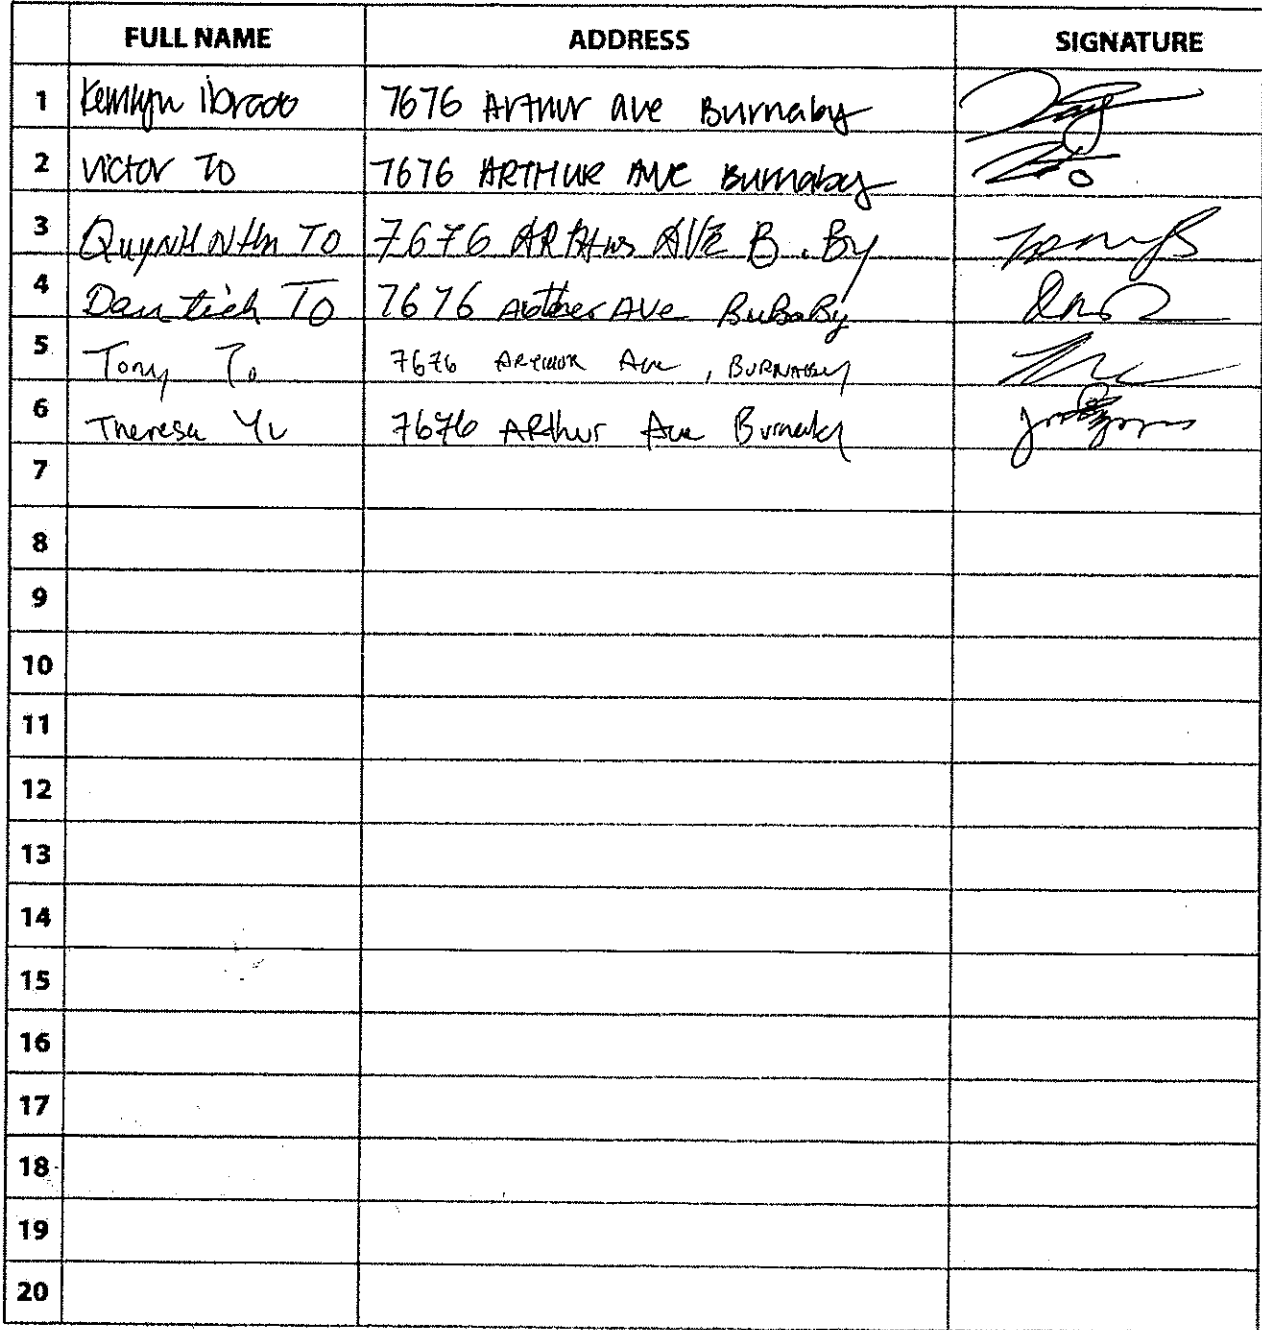 FULL NAME ADDRESS SIGNATURE
1 Kemlyn ibrado 7676 Arthur ave Burnaby
2 victor To 7676 ARTHUR AVE Burnaby
3 To 7676 AVE B.By
4 Dan tich To 7676 Ave BuBaBy
5 Tony To 7676 ARTHUR Ave, BURNABY
6 Theresa Yu 7676 ARthur Ave Burnaby
7
8
9
10
11
12
13
14
15
16
17
18
19
20